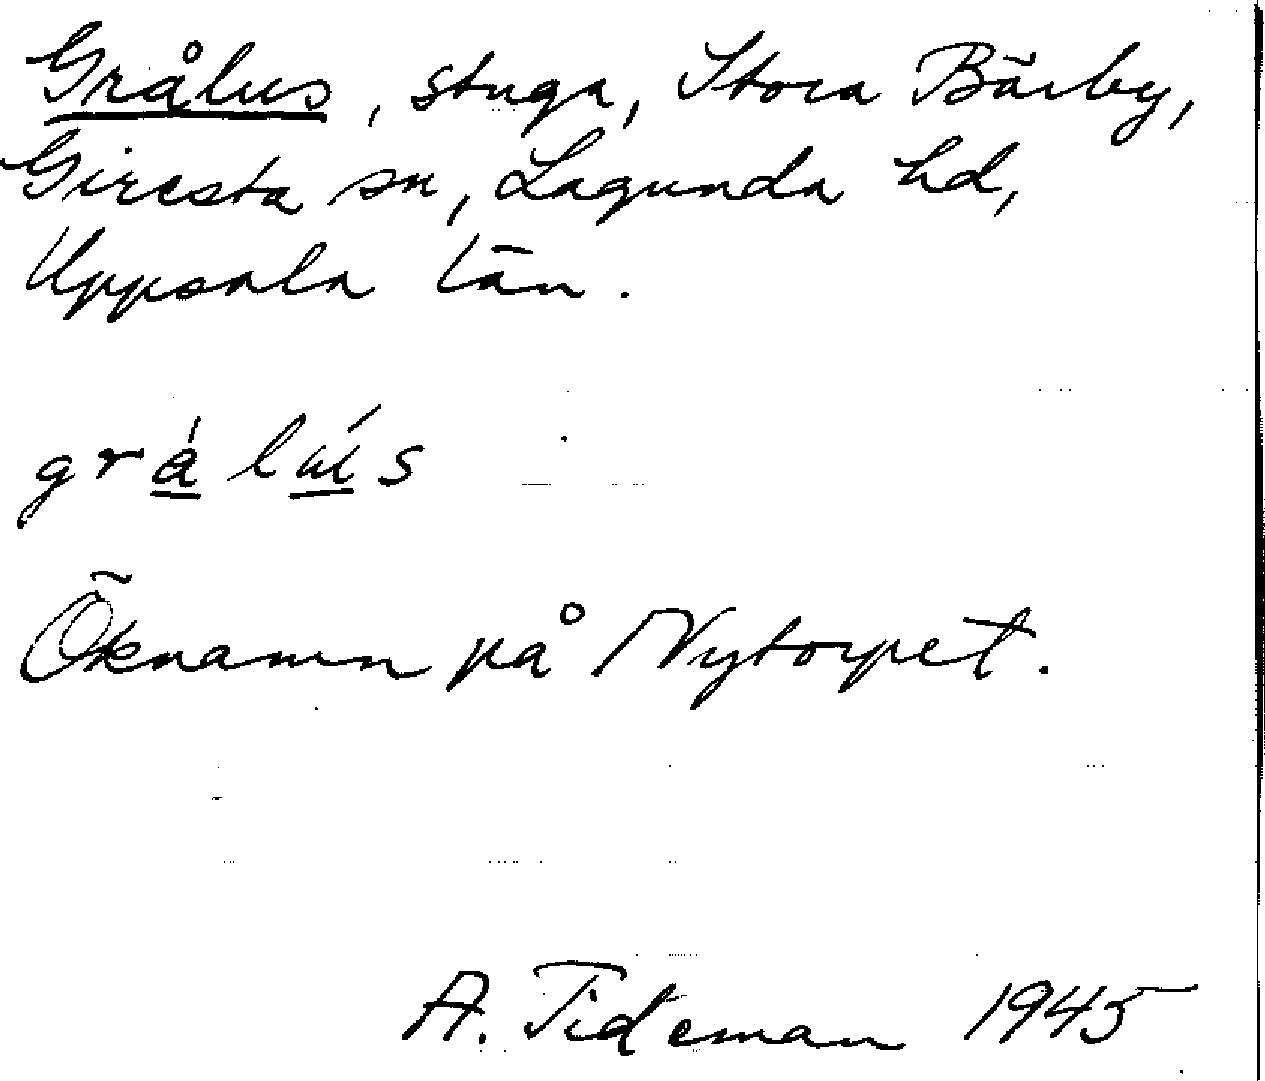 Grålus, stuga, Stora Bärby,
Giresta sn, Lagunda hd,
Uppsala län.
grálús
Öknamn på Nytorpet.
A. Tideman 1945